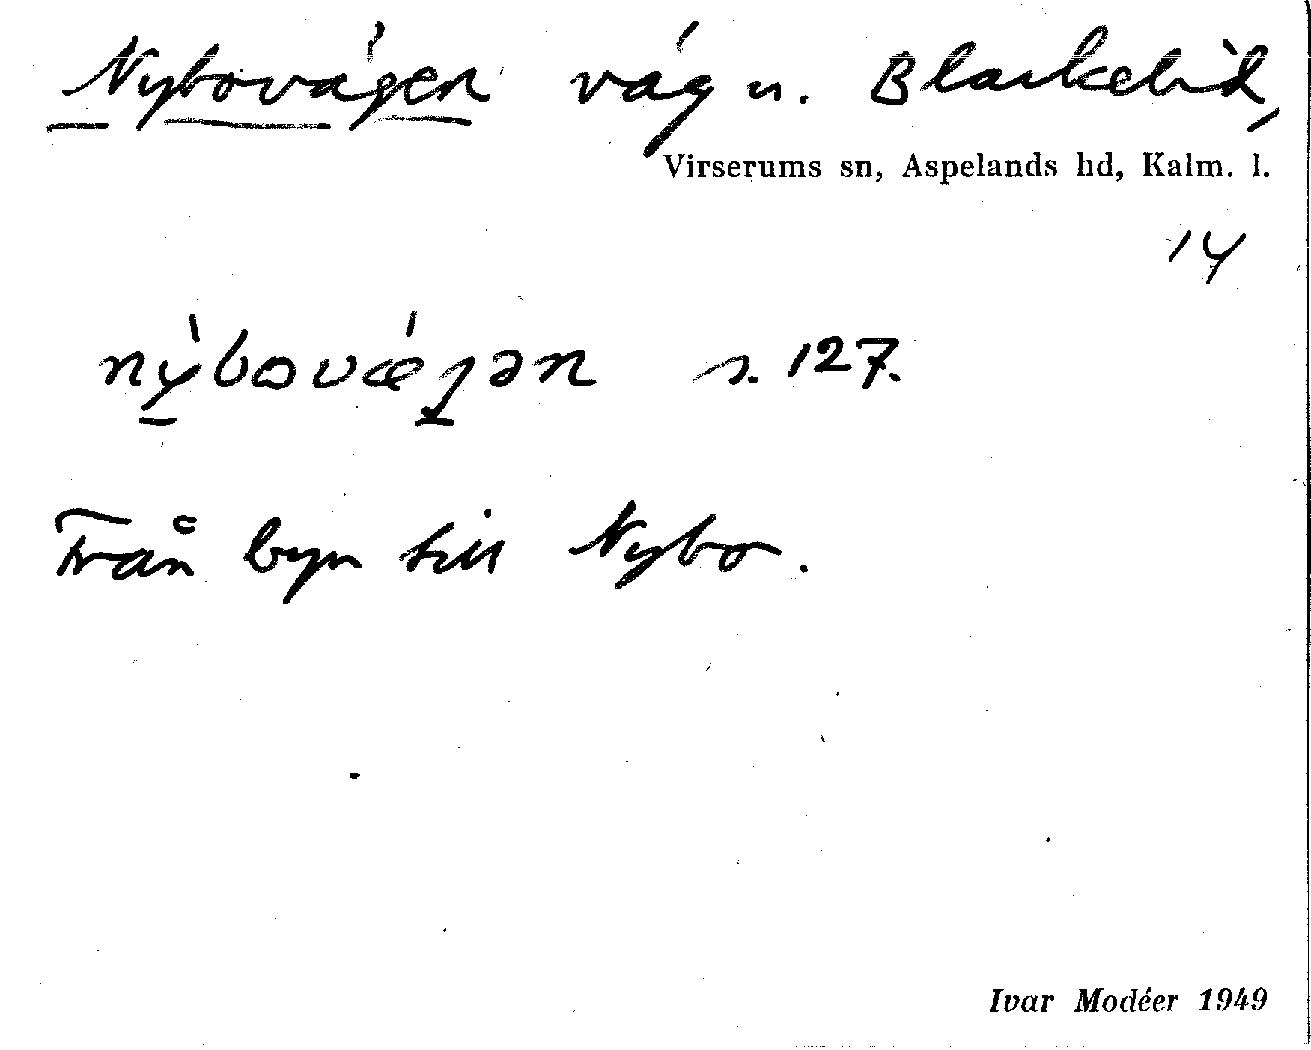 Nybovägen väg u.
Virserums sn, Aspelands hd, Kalm. l.
14
nýbovǽȷən s. 127.
Från byn till Nybo.
Ivar Modéer 1949